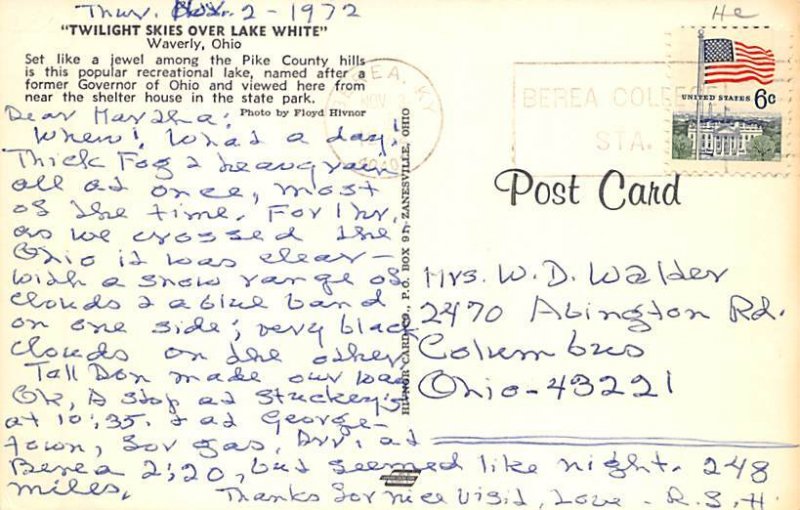 Thur. Nov. 2 - 1972
"TWILIGHT SKIES OVER LAKE WHITE"
Waverly, Ohio
Set like a jewel among the Pike County hills
is this popular recreational lake, named after a
former Governor of Ohio and viewed here from
near the shelter house in the state park.
Photo by Floyd Hivnor
Dear Martha:
Whew! What a day!
Thick Fog & heavy rain
all at once, most
of the time. For 1 hr.
as we crossed the
Ohio it was clear—
with a snow range of
clouds & a blue band
on one side; very black
clouds on the other
Tall Don made our
OK, A stop at Stuckey's
at 10:35. & at George-
town, for gas, Arr. at
Berea 2:20, but seemed like night. 248
miles,
Thanks for nice visit, Love - R.S.H.
HIVNOR CARD CO., P.O. BOX 917-ZANESVILLE, OHIO
He
BEREA, KY
NOV 2
BEREA COLLEGE
STA.
UNITED STATES 6c
Post Card
Mrs. W. D. Walter
2470 Abington Rd.
Columbus
Ohio - 43221